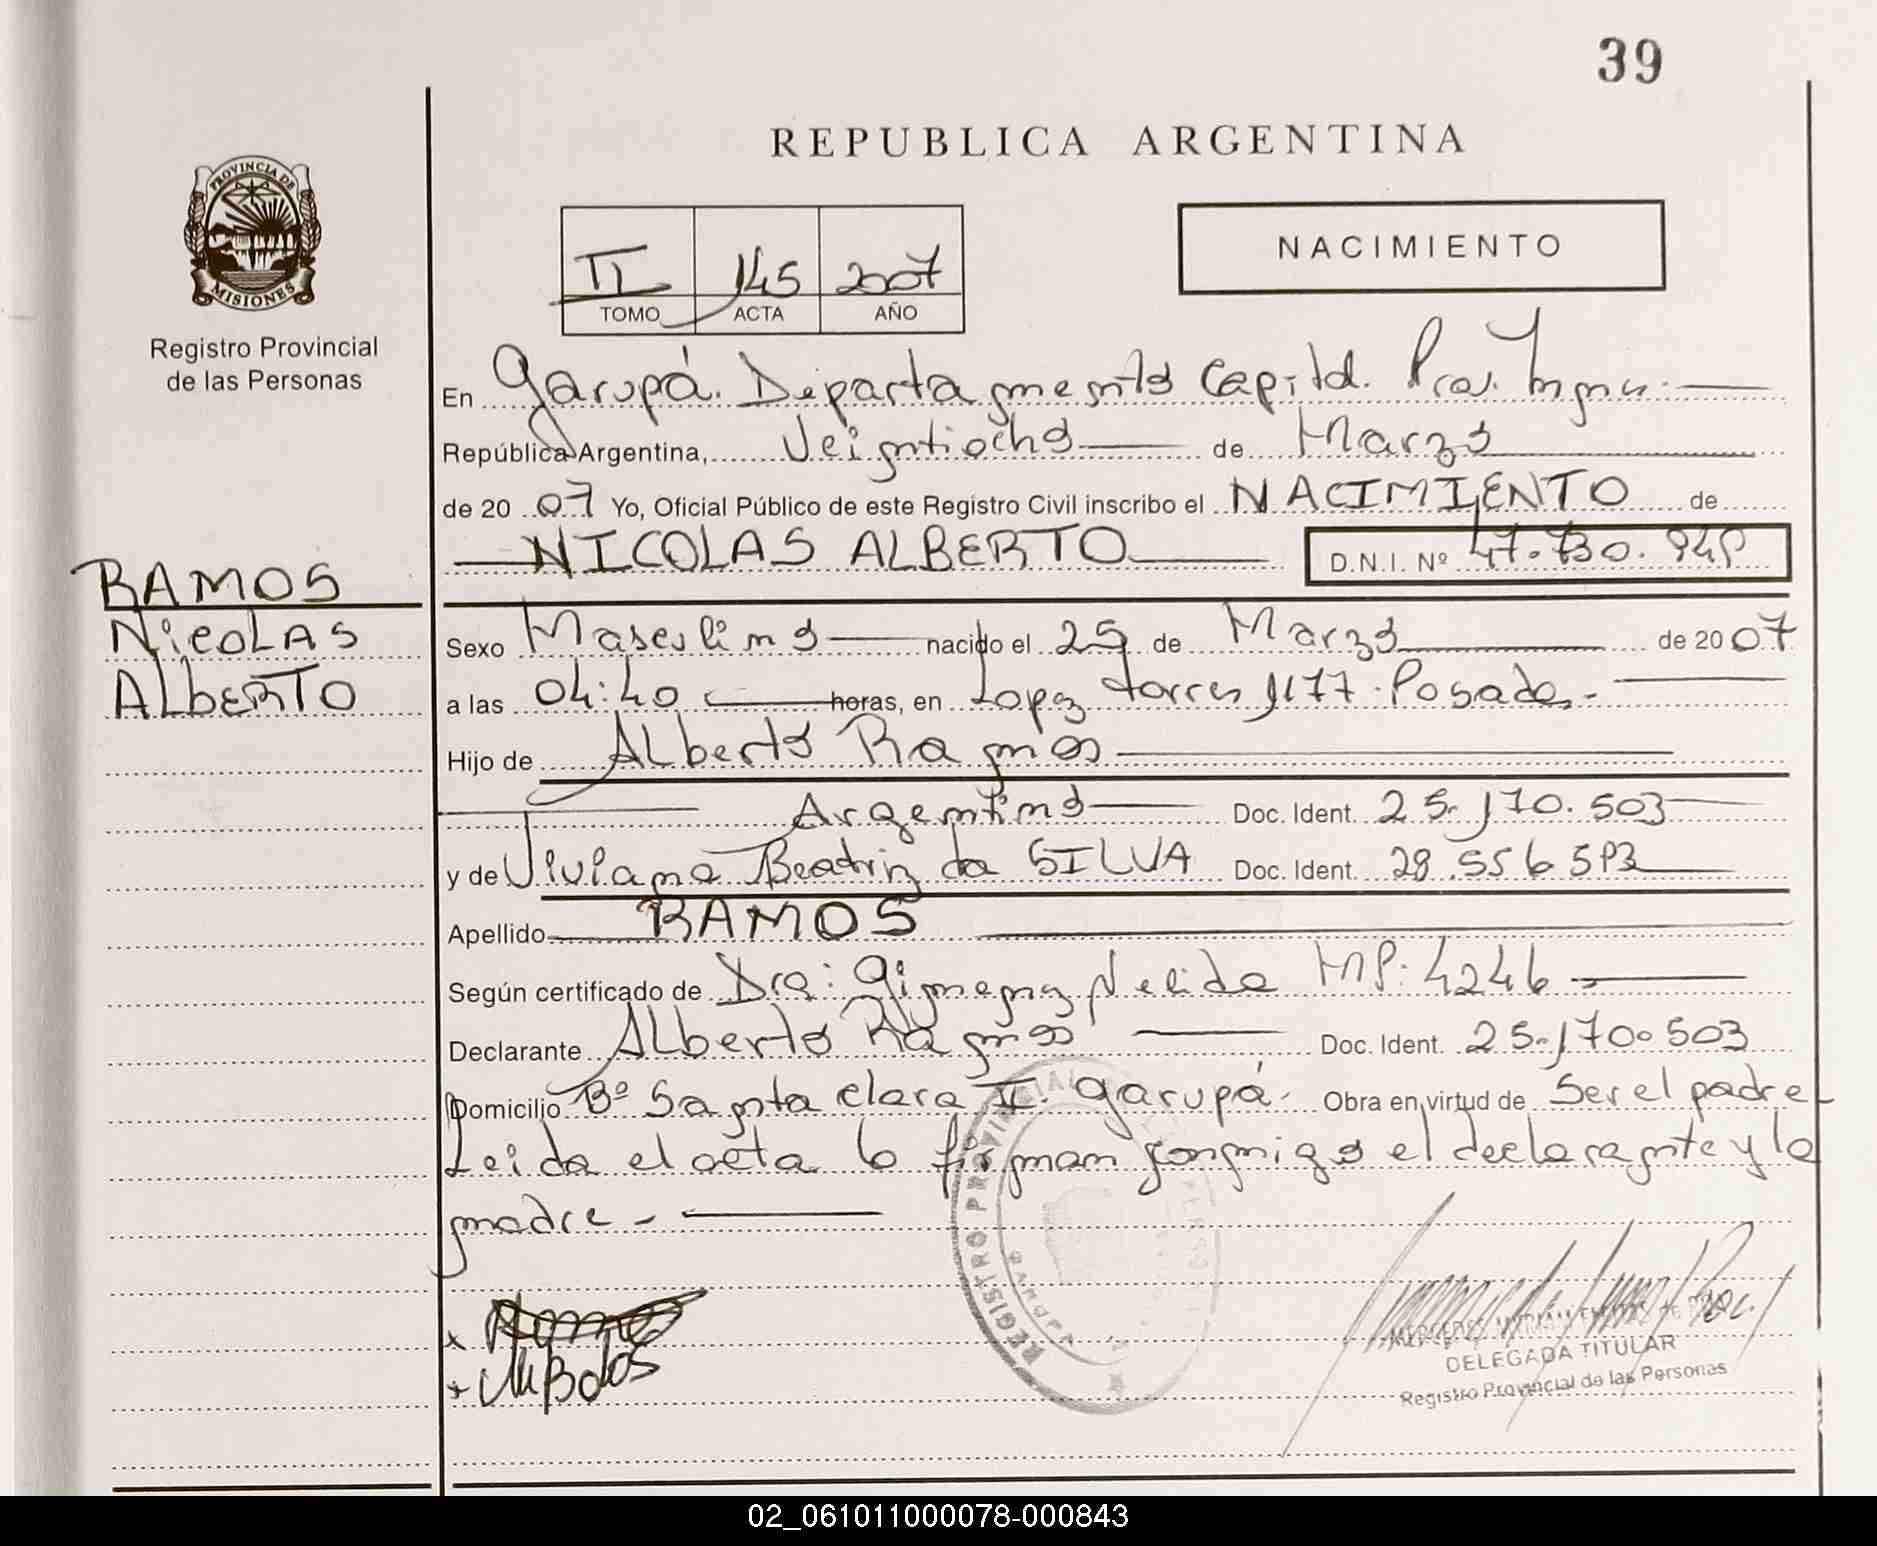 39
REPUBLICA ARGENTINA
PROVINCIA DE
MISIONES
Registro Provincial
de las Personas
II 145 2007
TOMO ACTA AÑO
NACIMIENTO
En Garupá. Departamento Capital. Pcia.
República Argentina, Veintiocho de Marzo
de 2007 Yo, Oficial Público de este Registro Civil inscribo el NACIMIENTO de
NICOLAS ALBERTO D.N.I. Nº 47.730.949
RAMOS
NicoLAS
ALbERTO
Sexo Masculino nacido el 25 de Marzo de 2007
a las 04:40 horas, en Lopez torres 1177. Posadas.-
Hijo de ALberto Ramos
Argentino Doc. Ident. 25.170.503
y de Viviana Beatriz da SILVA Doc. Ident. 28.556.593
Apellido RAMOS
Según certificado de Dra: Gimenez Nelida MP: 4246
Declarante ALberto Ramos Doc. Ident. 25.170.503
Domicilio Bº Santa Clara II. Garupá. Obra en virtud de Ser el padre
Leida el acta lo firman conmigo el declarante y la
madre.-
REGISTRO PROVINCIAL
DELEGADA TITULAR
Registro Provincial de las Personas
02_061011000078-000843